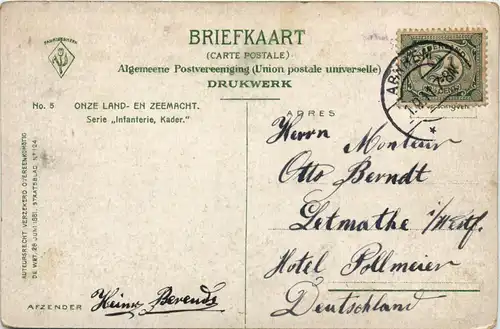 BRIEFKAART
(CARTE POSTALE)
Algemeene Postvereeniging (Union postale universelle)
DRUKWERK
No. 5 ONZE LAND- EN ZEEMACHT.
Serie „Infanterie, Kader."
ADRES
Herrn Monteur
Otto Berndt
Letmathe i/Westf.
Hotel Pollmeier
Deutschland
AFZENDER Heinr Berends
AUTEURSRECHT VERZEKERD OVEREENKOMSTIG
DE WET 28 JUNI 1881, STAATSBLAD Nº 124